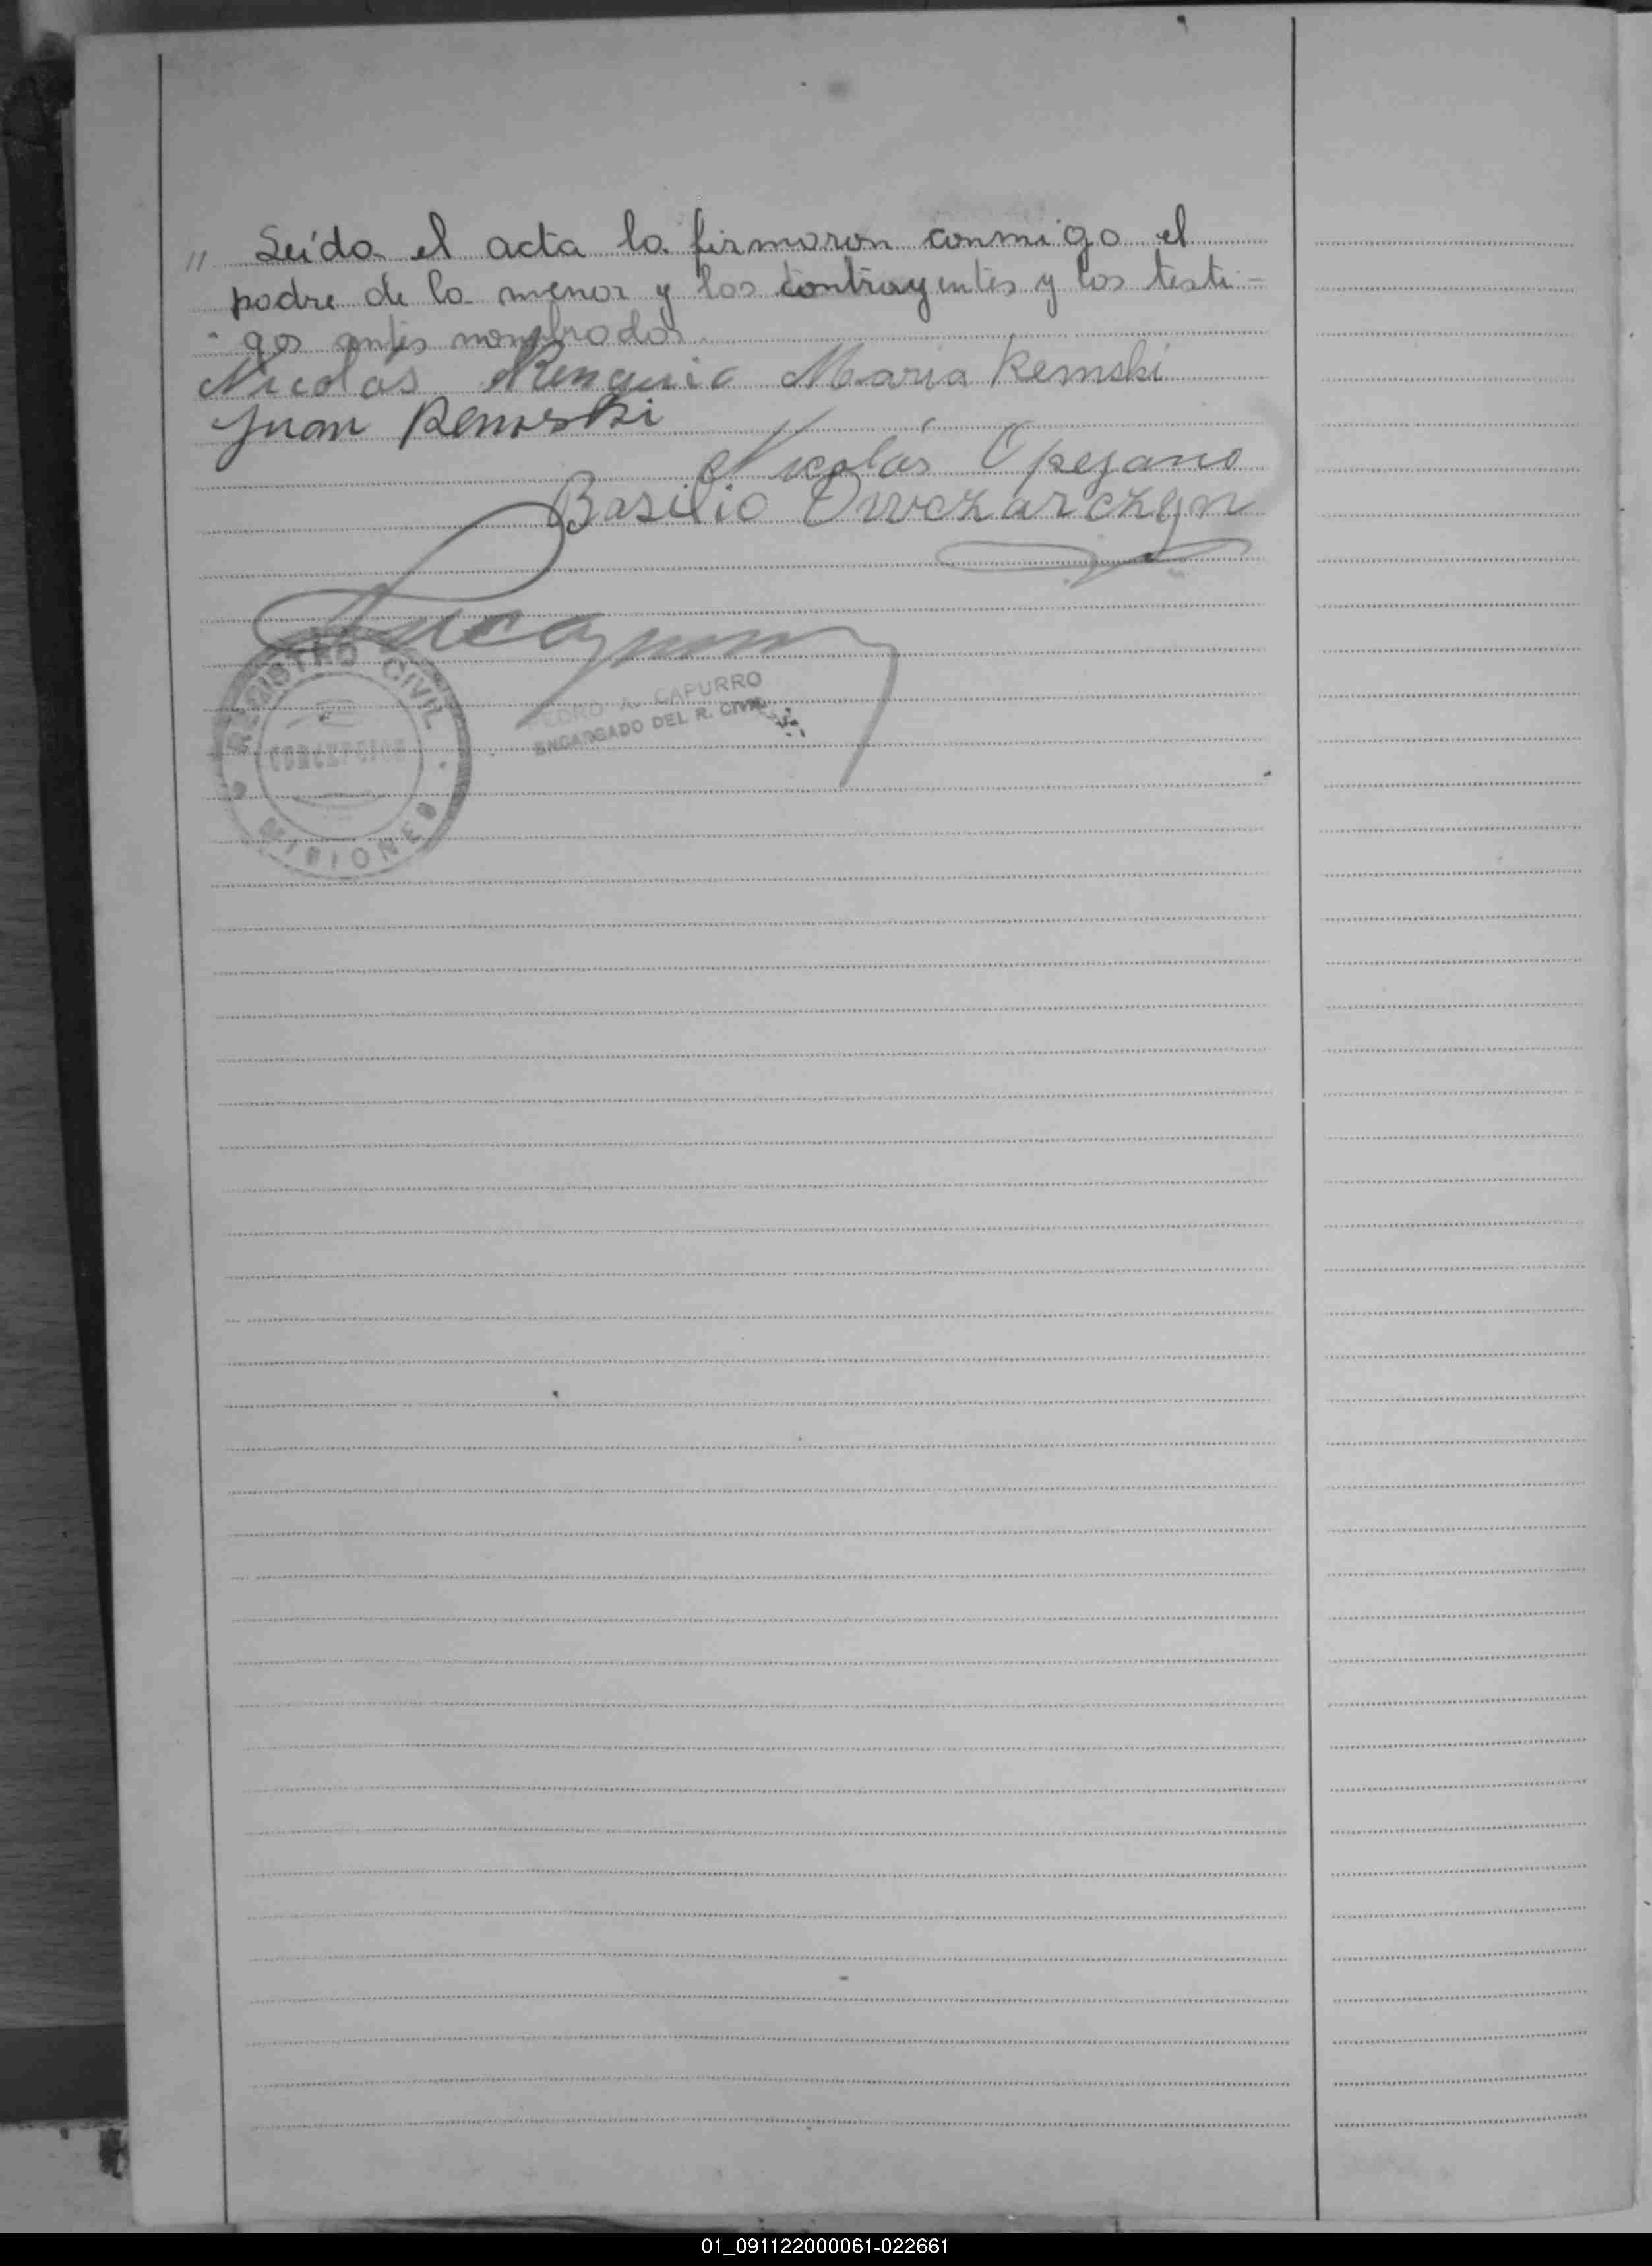 " Leída el acta la firmaron conmigo el
padre de la menor y los contrayentes y los testi-
-gos antes nombrados.
Nicolás María Remski
Juan Remski
Nicolás Opejano
Basilio Owczarczyn
REGISTRO CIVIL
CONCEPCION
MISIONES
PEDRO A. CAPURRO
ENCARGADO DEL R. CIVIL
01_091122000061-022661